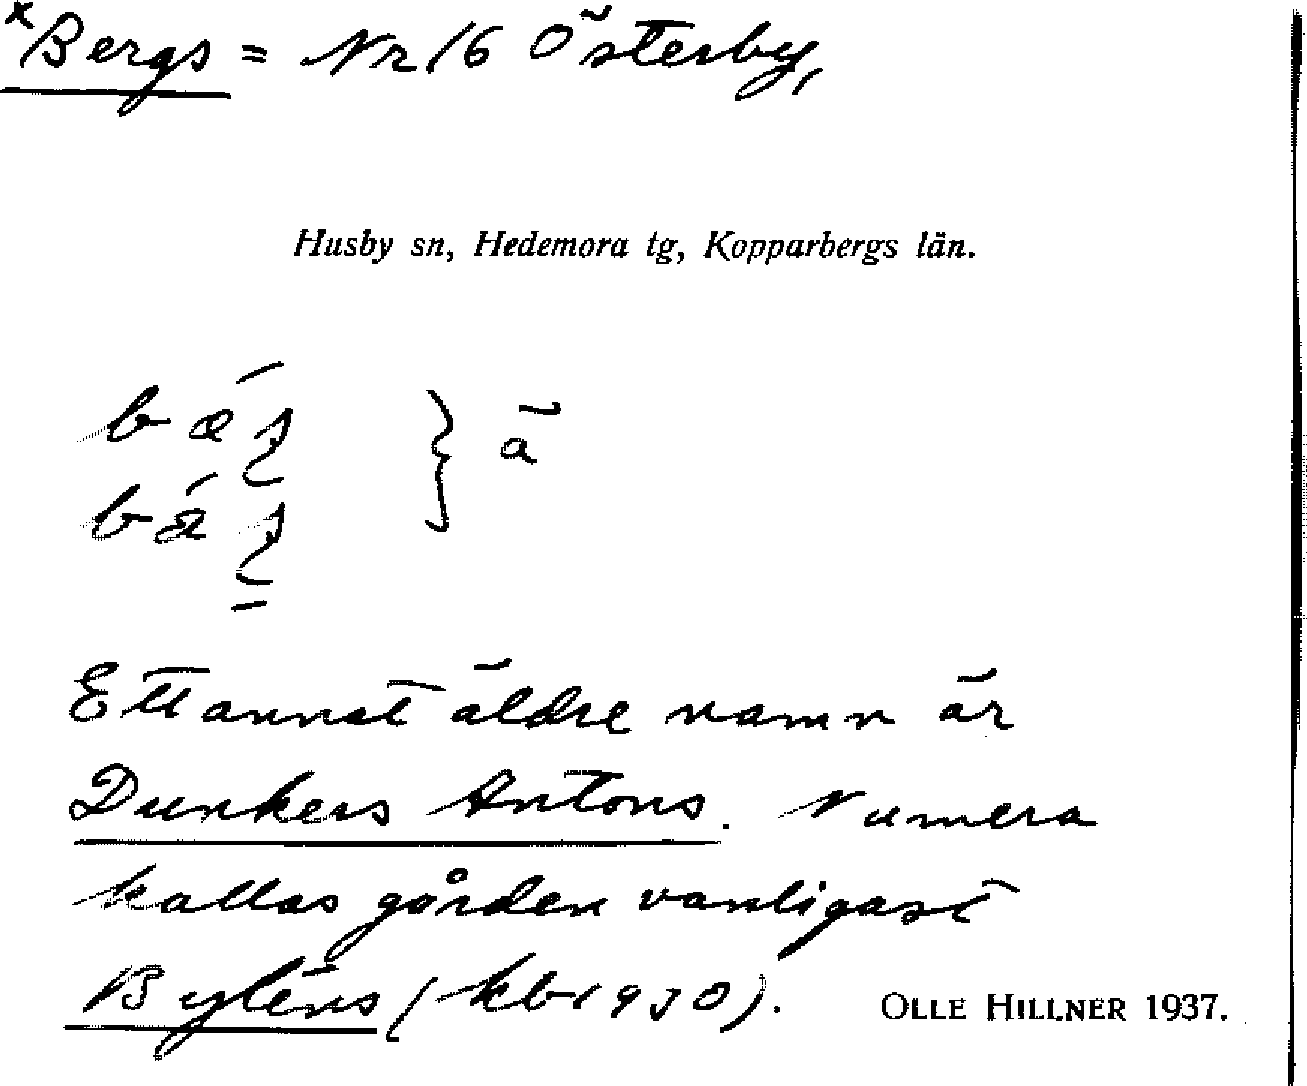 ×Bergs = Nr 16 Österby,
Husby sn, Hedemora tg, Kopparbergs län.
} ā
Ett annat äldre namn är
Dunkers Antons. Numera
kallas gården vanligast
Byléns (kb 1930).
OLLE HILLNER 1937.